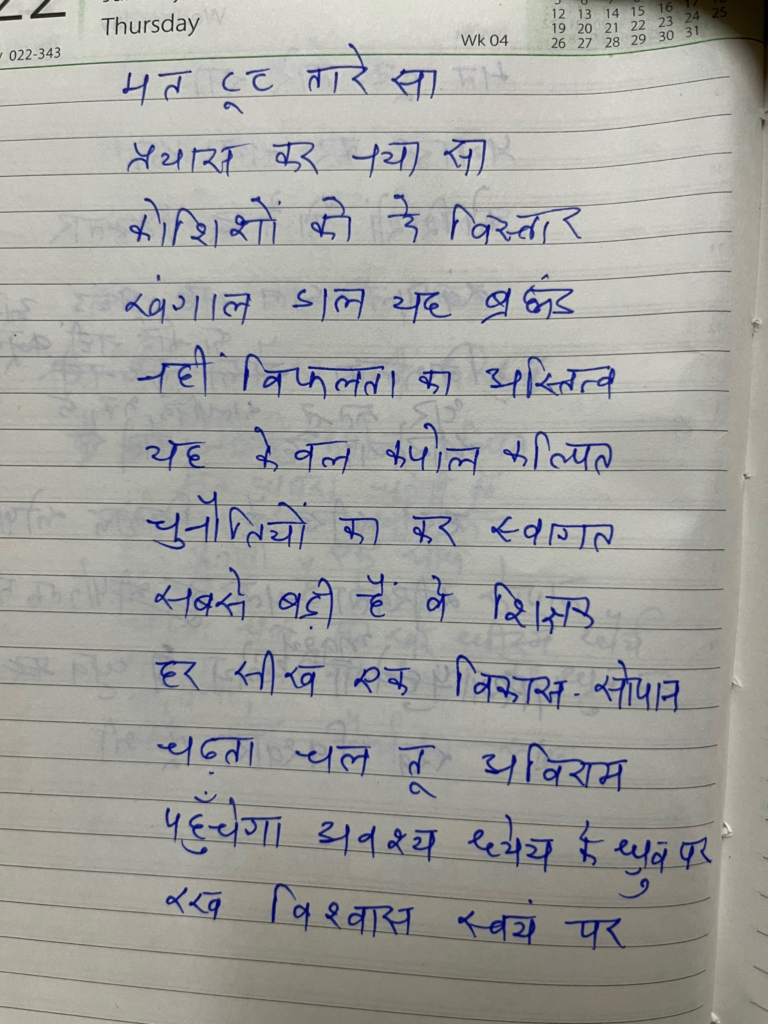 22
Thursday
022-343
Wk 04
12 13 14 15 16 17 18
19 20 21 22 23 24 25
26 27 28 29 30 31
मत टूट तारे सा
प्रयास कर नया सा
कोशिशों को दे विस्तार
खंगाल डाल यह ब्रह्मंड
नहीं विफलता का अस्तित्व
यह केवल कपोल कल्पित
चुनौतियों का कर स्वागत
सबसे बड़ी हैं वे शिक्षक
हर सीख एक विकास-सोपान
चढ़ता चल तू अविराम
पहुँचेगा अवश्य ध्येय के ध्रुव पर
रख विश्वास स्वयं पर